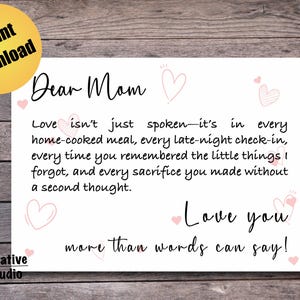 nt
nload
Dear Mom
Love isn't just spoken—it's in every
home-cooked meal, every late-night check-in,
every time you remembered the little things I
forgot, and every sacrifice you made without
a second thought.
Love you
more than words can say!
ative
udio